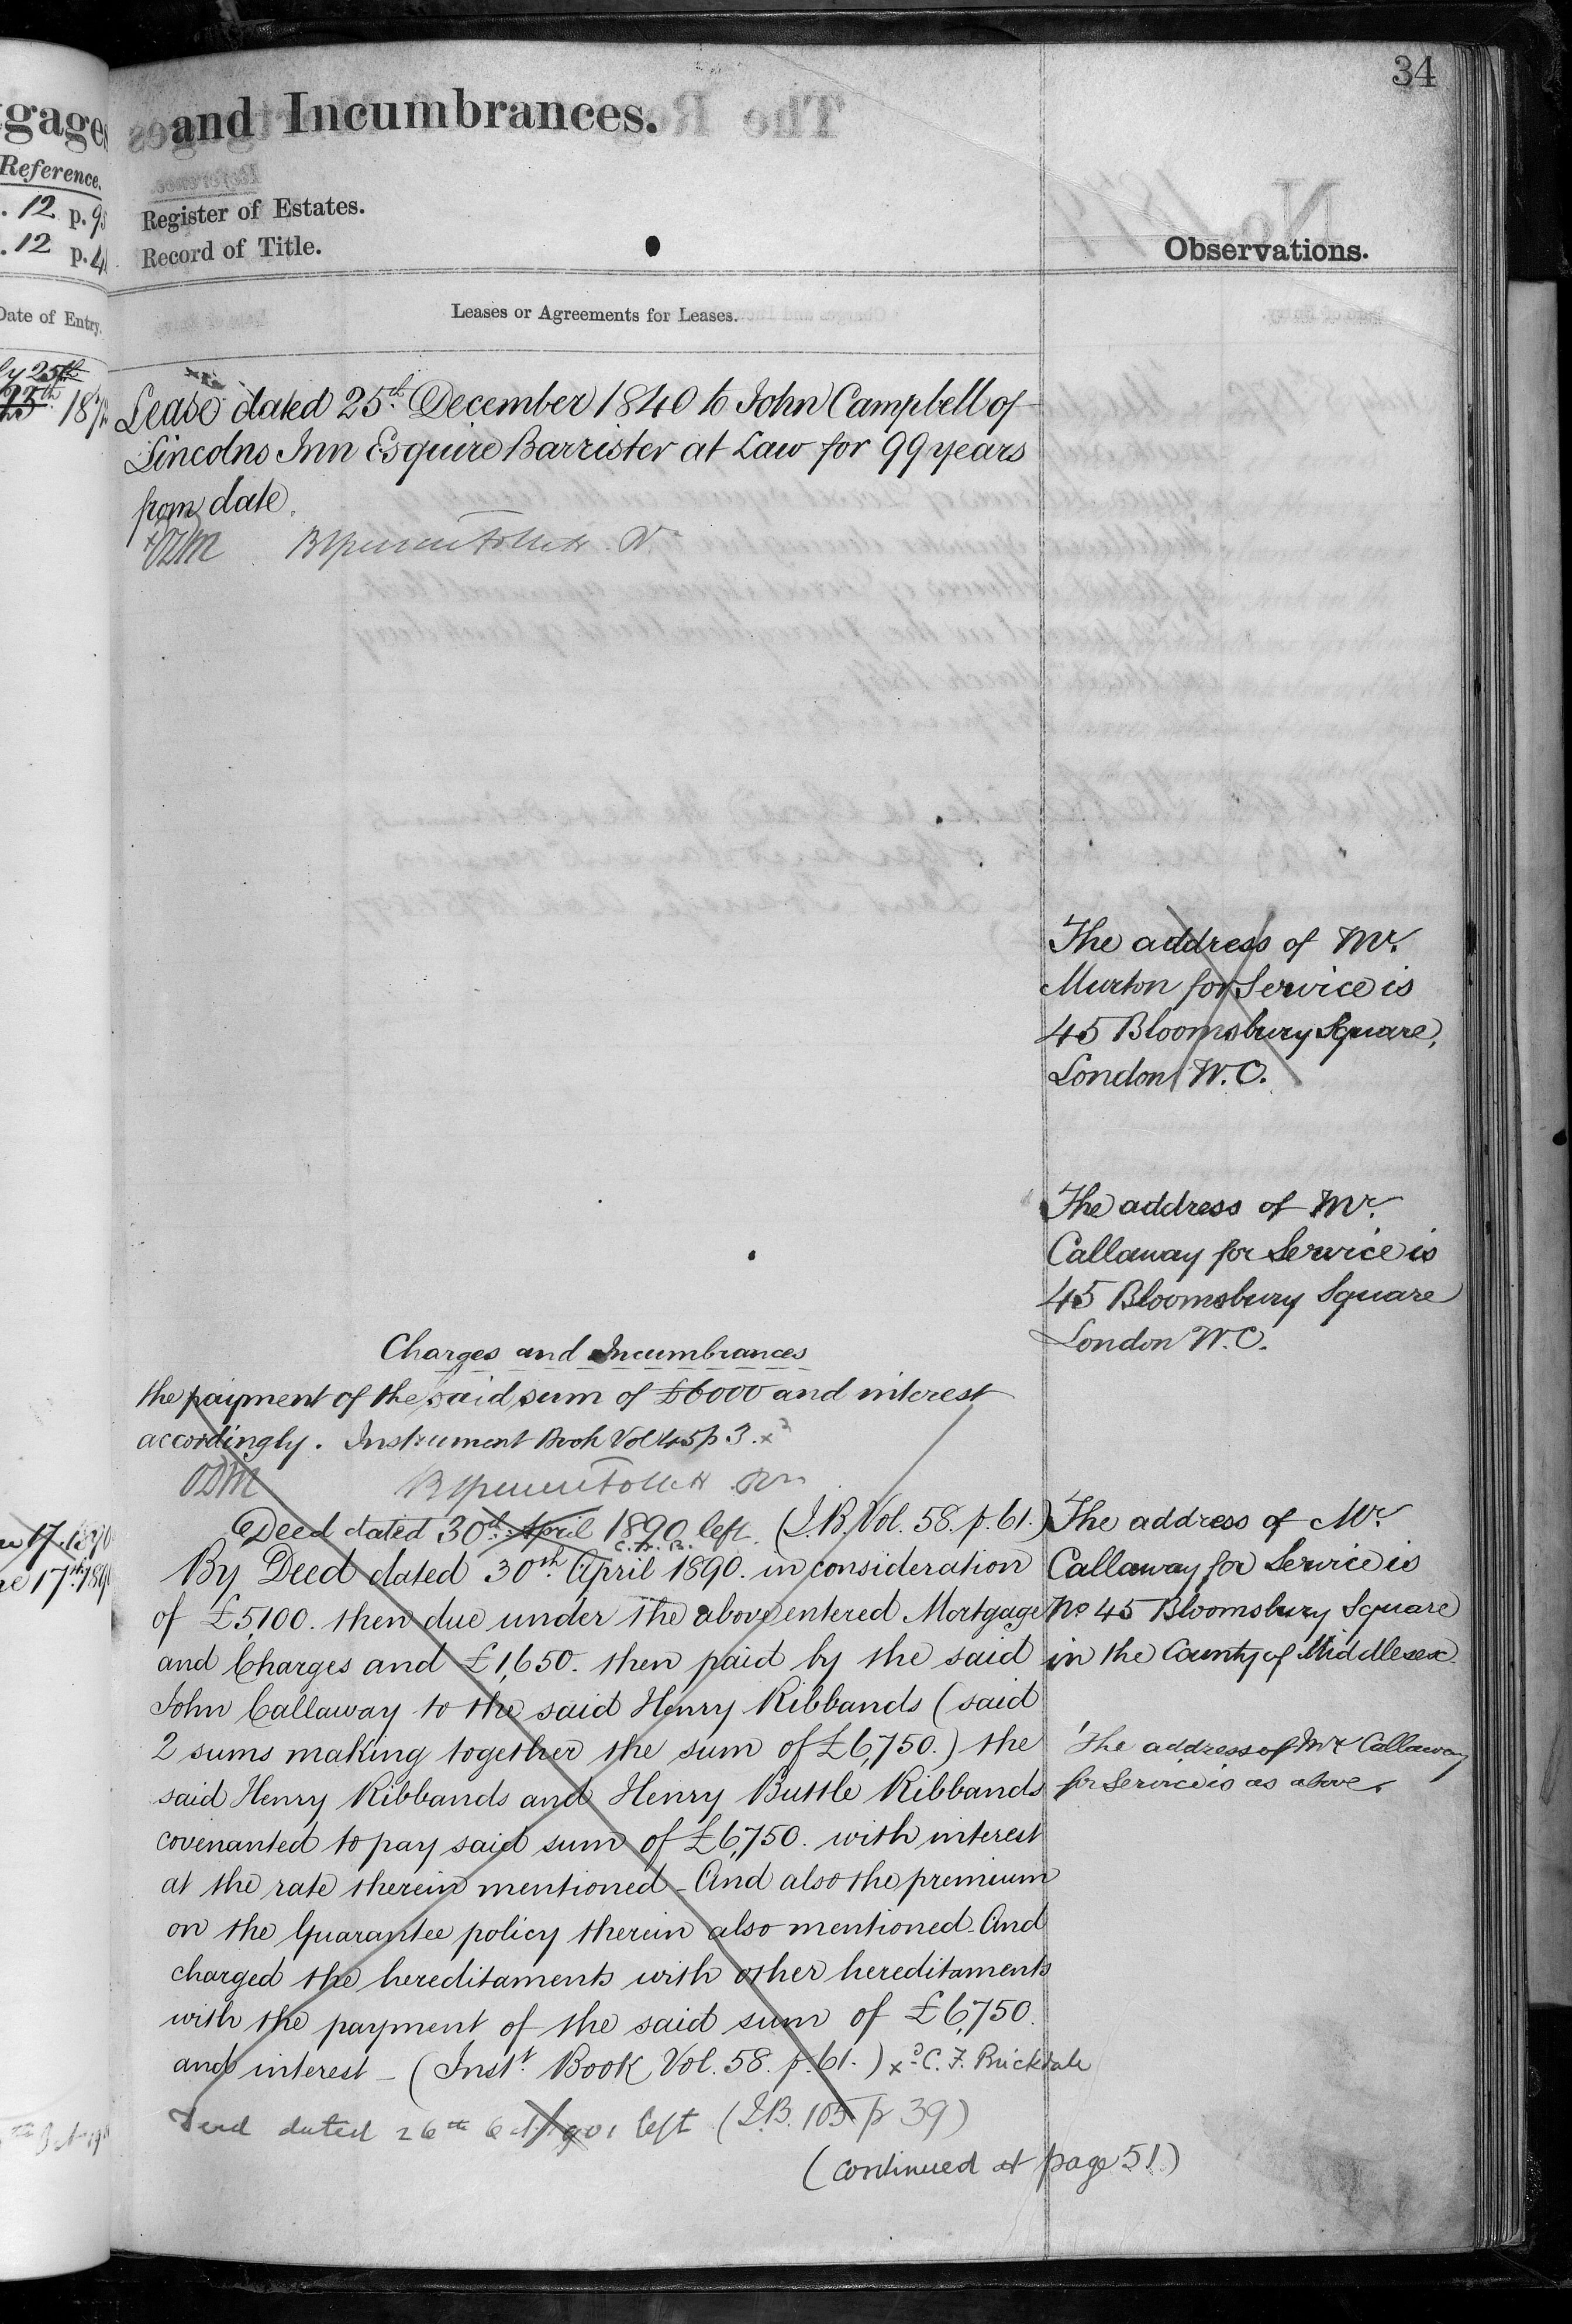 34
gages
and Incumbrances.
Reference.
12 p. 9
Register of Estates.
12 p. 4
Record of Title.
Observations.
Date of Entry.
Leases or Agreements for Leases.
25th
25th 187
Lease dated 25th December 1840 to John Campbell of
Lincolns Inn Esquire Barrister at Law for 99 years
from date.
ODM
The address of Mr.
Murton for Service is
45 Bloomsbury Square,
London W.C.
The address of Mr.
Callaway for Service is
45 Bloomsbury Square
London W.C.
Charges and Incumbrances
the payment of the said sum of £6000 and interest
accordingly. Instrument Book Vol 45 p 3.
ODM
Deed dated 30th April 1890 left (I.B. Vol. 58. p. 61.)
C.F.B.
By Deed dated 30th April 1890. in consideration
of £5,100. then due under the above entered Mortgage
and Charges and £1,650. then paid by the said
John Callaway to the said Henry Ribbands (said
2 sums making together the sum of £6,750.) the
said Henry Ribbands and Henry Buttle Ribbands
covenanted to pay said sum of £6,750. with interest
at the rate therein mentioned - And also the premium
on the Guarantee policy therein also mentioned - And
charged the hereditaments with other hereditaments
with the payment of the said sum of £6,750.
and interest - (Instt. Book Vol. 58. p. 61.) C. F. Brickdale
Deed dated 26th Oct 1901 left (I.B. 105 p 39)
(continued at page 51)
The address of Mr.
Callaway for Service is
No 45 Bloomsbury Square
in the County of Middlesex
The address of Mr Callaway
for Service is as above.
17. 1890
17th 1890